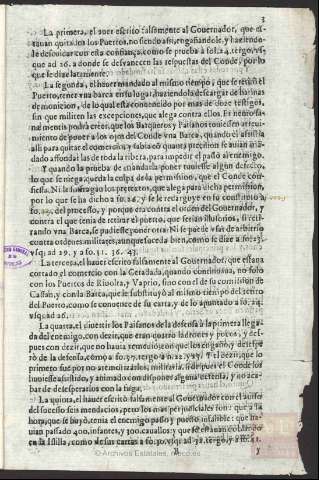 3
La primera, el auer escrito falsamente al Governador, que estauan quitados los Puertos, no siendo assi, engañandole, y haziendole descuidar con esta confiança, como se prueba à fol. 24. tergo, vsque ad 26. a donde se desvanecen las respuestas del Conde, por lo que le dize latamente.
La segunda, el hauer mandado al mismo tiempo, que se retire el Puerto, tener vna barca en su lugar, haziendola descargar de harinas de monicion, de lo qual està convencido por mas de doze testigos, sin que militen las excepciones, que alega contra ellos.
mente podrà creer, que los Barqueros y Paisanos tuuiessen atreuimiento de poner a los ojos del Conde vna Barca, quando èl assistia alli para quitar el comercio, y sabiendo quanta precision se auian mandado assondar las de toda la ribera, para impedir el passo al enemigo,
Y quando la prueba de mandarla poner tuuiesse algun defecto, lo que se niega, queda la culpa de la permission, que el Conde confiessa. Ni le sufragan los pretextos, que alega para dicha permission, por lo que se ha dicho à fo. 26. y se le redarguye en su constituto à fo. 29. del processo, y porque era contra el orden del Governador, y contra el que tenia de retirar el puerto, que serian illusorios, si retirando vna Barca, se pudiesse poner otra: Ni se puede vsar de arbitrio contra ordenes militares, aunque suceda bien, como se dize à fo. 23. vsq; ad 29. y a fo. 31. 36. 43.
La tercera, el hauer escrito falsamente al Governador, que estaua cortado el comercio con la Geradada, quando continuaua, no solo con los Puertos de Riuolta, y Vaprio, sino con el de su comission de Cassan, y con la Barca, que se substituyò al mismo tiempo del retiro del Puerto, como se conuence de su carta, y de lo apuntado à fo. 24. vsq; ad 26.
La quarta, el diuertir los Paisanos de la defensa à la primera llegada del enemigo, con dezir, que eran quatro ladrones y potros, y despues con dezir, que no hauia remedio con que los engañò, y desesperò de la defensa, como à fo. 37. tergo n. 22. 23. 25. Y el dezir, que lo primero fue por no atemorizarlos, militaria, si despues el Conde los huuiesse assistido, y animado con disponer alguna defensa, y no acabar de desesperarlos con la fuga.
La quinta, el hauer escrito falsamente al Governador con el auiso del sucesso seis mendacios, pero los mas perjudiciales son: que à la hora, que se huyò, tenia el enemigo passo y puesto infalible: que hauian passado 400. infantes, y 100. cauallos: y que se estauan
en la Isilla, como de sus cartas à fo. 30. vsq; ad 32. tergo, y fo. 41.
© Archivos Estatales, mecd.es